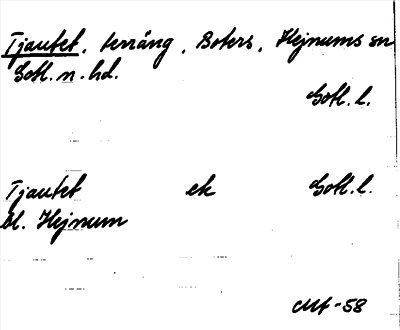 Tjautet, terräng, Boters, Hejnums sn
Gotl. n. hd.
Gotl. l.
Tjautet ek Gotl. l.
bl. Hejnum